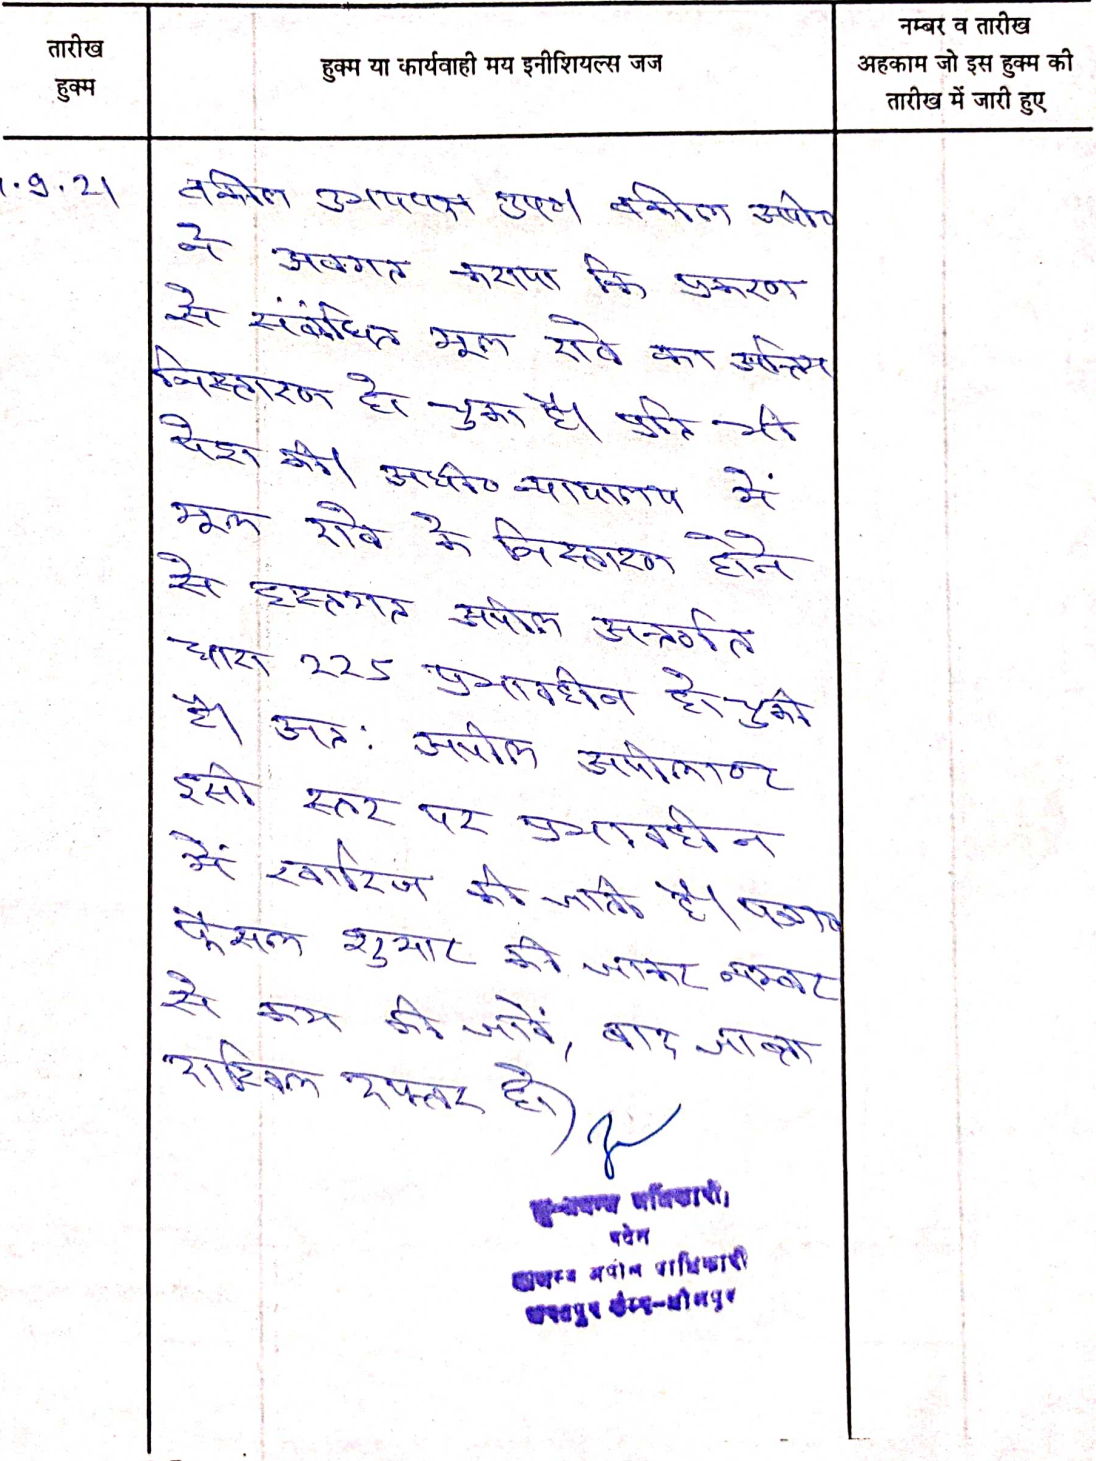 तारीख
हुक्म
हुक्म या कार्यवाही मय इनीशियल्स जज
नम्बर व तारीख
अहकाम जो इस हुक्म की
तारीख में जारी हुए
.9.21
वकील उभयपक्ष उप0 वकील अपी0
ने अवगत कराया कि प्रकरण
से संबंधित मूल दावे का अन्तिम
निस्तारण हो चुका है। प्रति भी
पेश की। अधी0 न्यायालय में
मूल दावे के निस्तारण होने
से हस्तगत अपील अन्तर्गत
धारा 225 प्रभावहीन हो चुकी
है। अत: अपील अपीलान्ट
इसी स्तर पर प्रभावहीन
में खारिज की जाती है।
फैसल शुमार की जाकर नम्बर
से कम की जावें, बाद जाब्ता
दाखिल दफ्तर हो।
भू-प्रबन्ध अधिकारी,
पदेन
राजस्व अपील प्राधिकारी
भरतपुर कैम्प-धौलपुर